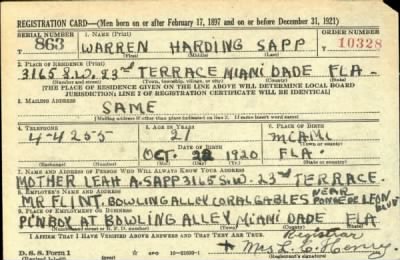 REGISTRATION CARD—(Men born on or after February 17, 1897 and on or before December 31, 1921)
SERIAL NUMBER 1. NAME (Print) ORDER NUMBER
863 WARREN HARDING SAPP 10328
(First) (Middle) (Last)
2. PLACE OF RESIDENCE (Print)
3165 S.W. 23rd TERRACE MIAMI DADE FLA -
(Number and street) (Town, township, village, or city) (County) (State)
[THE PLACE OF RESIDENCE GIVEN ON THE LINE ABOVE WILL DETERMINE LOCAL BOARD
JURISDICTION; LINE 2 OF REGISTRATION CERTIFICATE WILL BE IDENTICAL]
3. MAILING ADDRESS
SAME
[Mailing address if other than place indicated on line 2. If same insert word same]
4. TELEPHONE 5. AGE IN YEARS 6. PLACE OF BIRTH
4-4255 21 MIAMI
DATE OF BIRTH
OCT. 22 1920 FLA -
7. NAME AND ADDRESS OF PERSON WHO WILL ALWAYS KNOW YOUR ADDRESS
MOTHER LEAH A. SAPP 3165 S.W. 23rd TERRACE.
8. EMPLOYER'S NAME AND ADDRESS
MR FLINT. BOWLING ALLEY CORAL GABLES NEAR PONCE DE LEON
9. PLACE OF EMPLOYMENT OR BUSINESS
PINBOY AT BAWLING ALLEY MIAMI DADE FLA
I AFFIRM THAT I HAVE VERIFIED ABOVE ANSWERS AND THAT THEY ARE TRUE.
Registrar
D. S. S. Form 1
Mrs. L. C. Henry